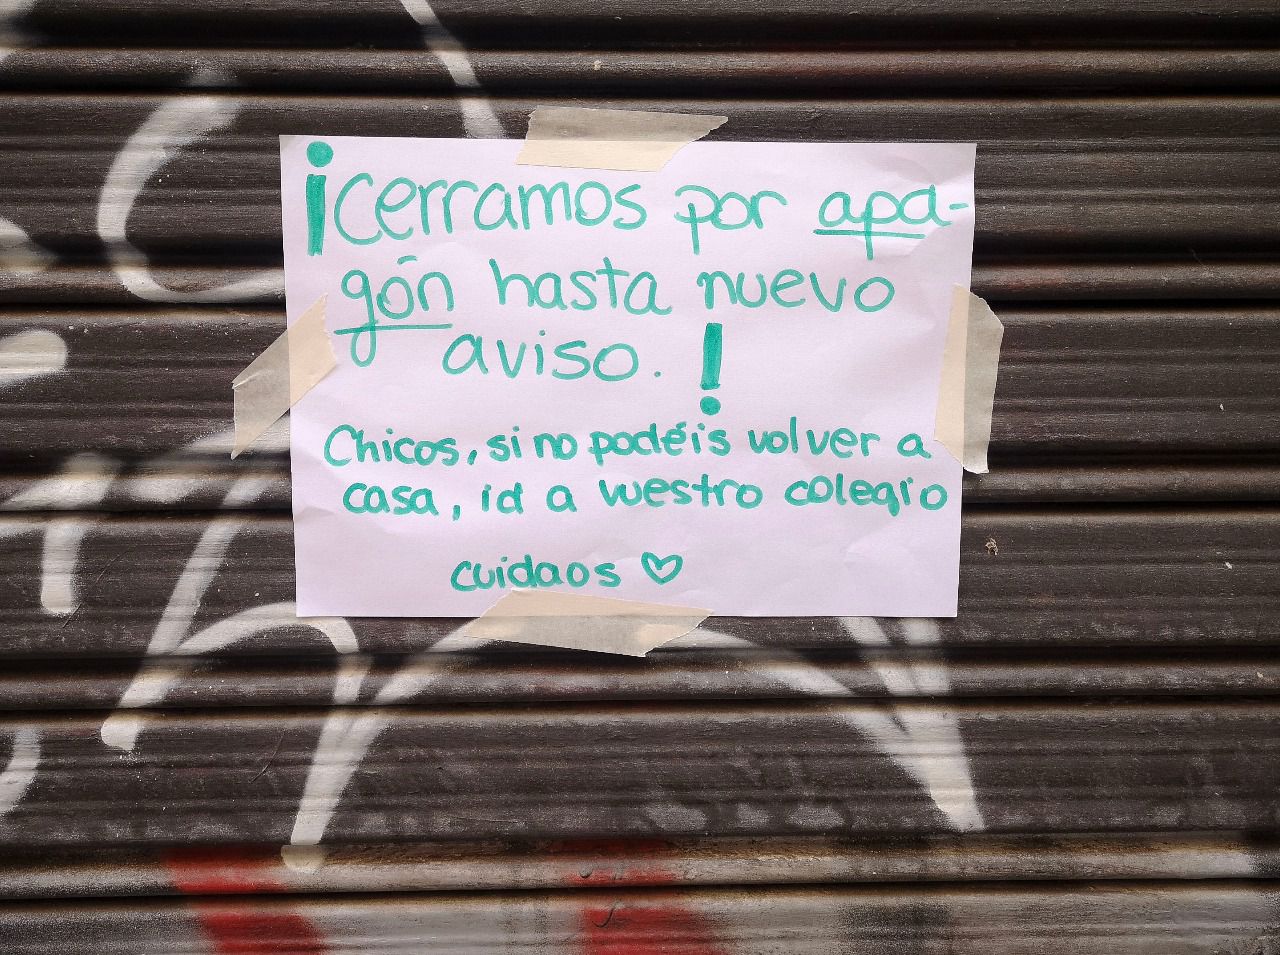 ¡Cerramos por apa-
gón hasta nuevo
aviso. !
Chicos, si no podéis volver a
casa, id a vuestro colegio
cuidaos ♡